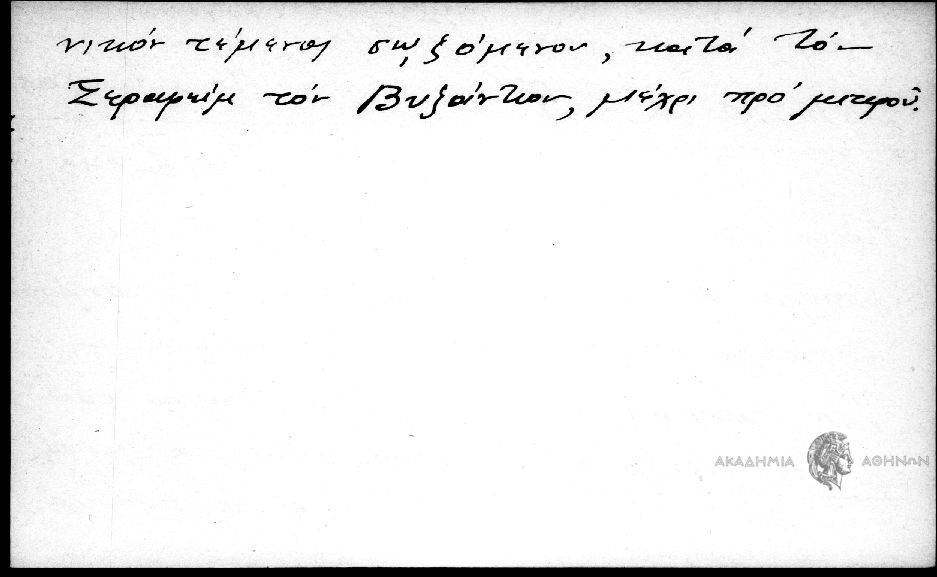 νικόν τέμενος σῳζόμενον, κατά τόν
Σεραφείμ τόν Βυζάντιον, μέχρι πρό μικροῦ.
ΑΚΑΔΗΜΙΑ ΑΘΗΝΩΝ